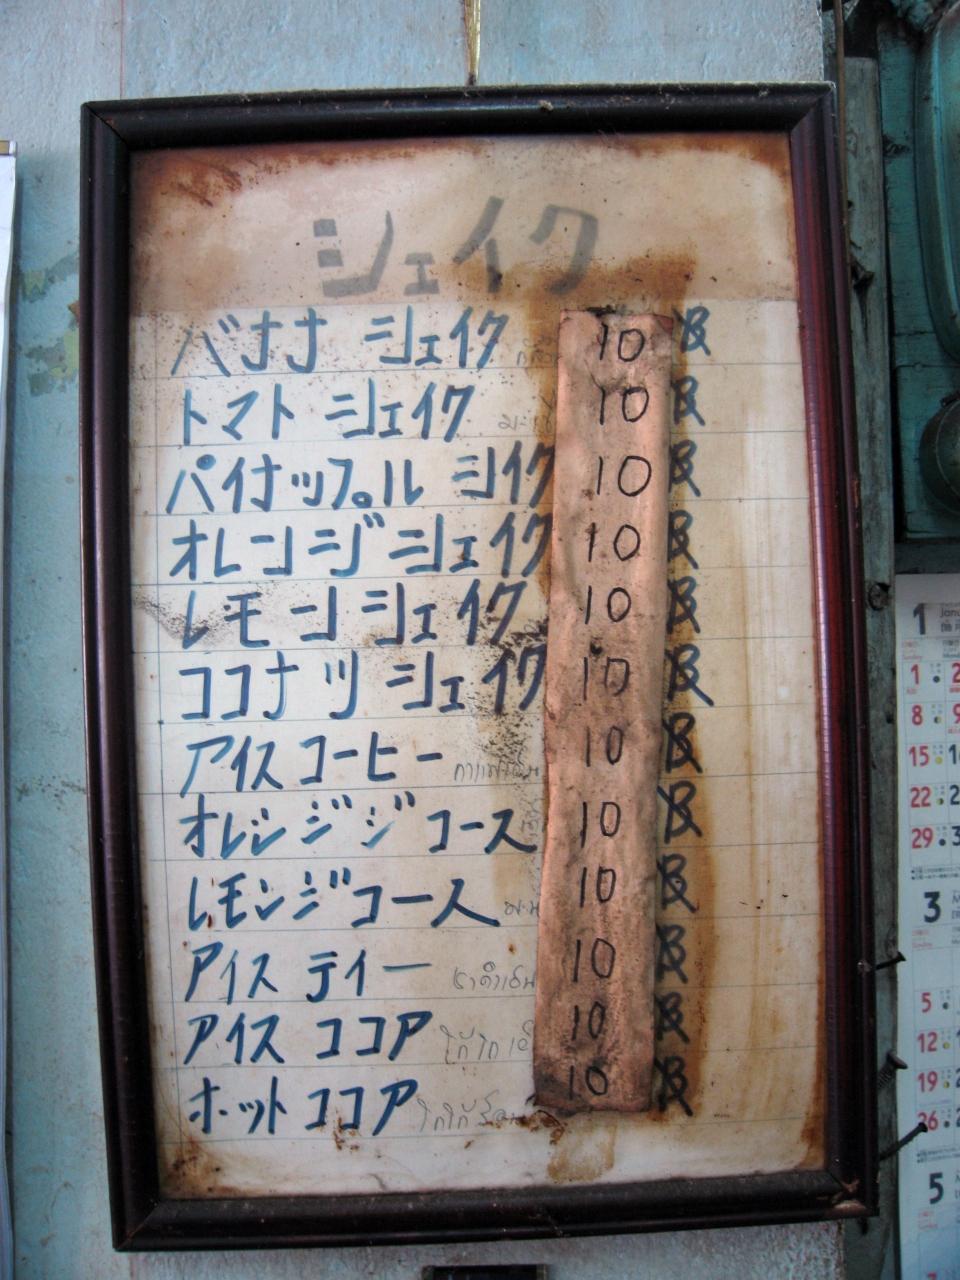 シェイク
バナナ シェイク 10 B
トマト シェイク 10 B
パイナップル シイク 10 B
オレンジ シェイク 10 B
レモン シェイク 10 B
ココナツ シェイク 10 B
アイス コーヒー 10 B
オレンジジ コース 10 B
レモンジ コース 10 B
アイス ティー ชาดำเย็น 10 B
アイス ココア 10 B
ホット ココア 10 B
1
1
8
15
22
29
3
5
12
19
26
5